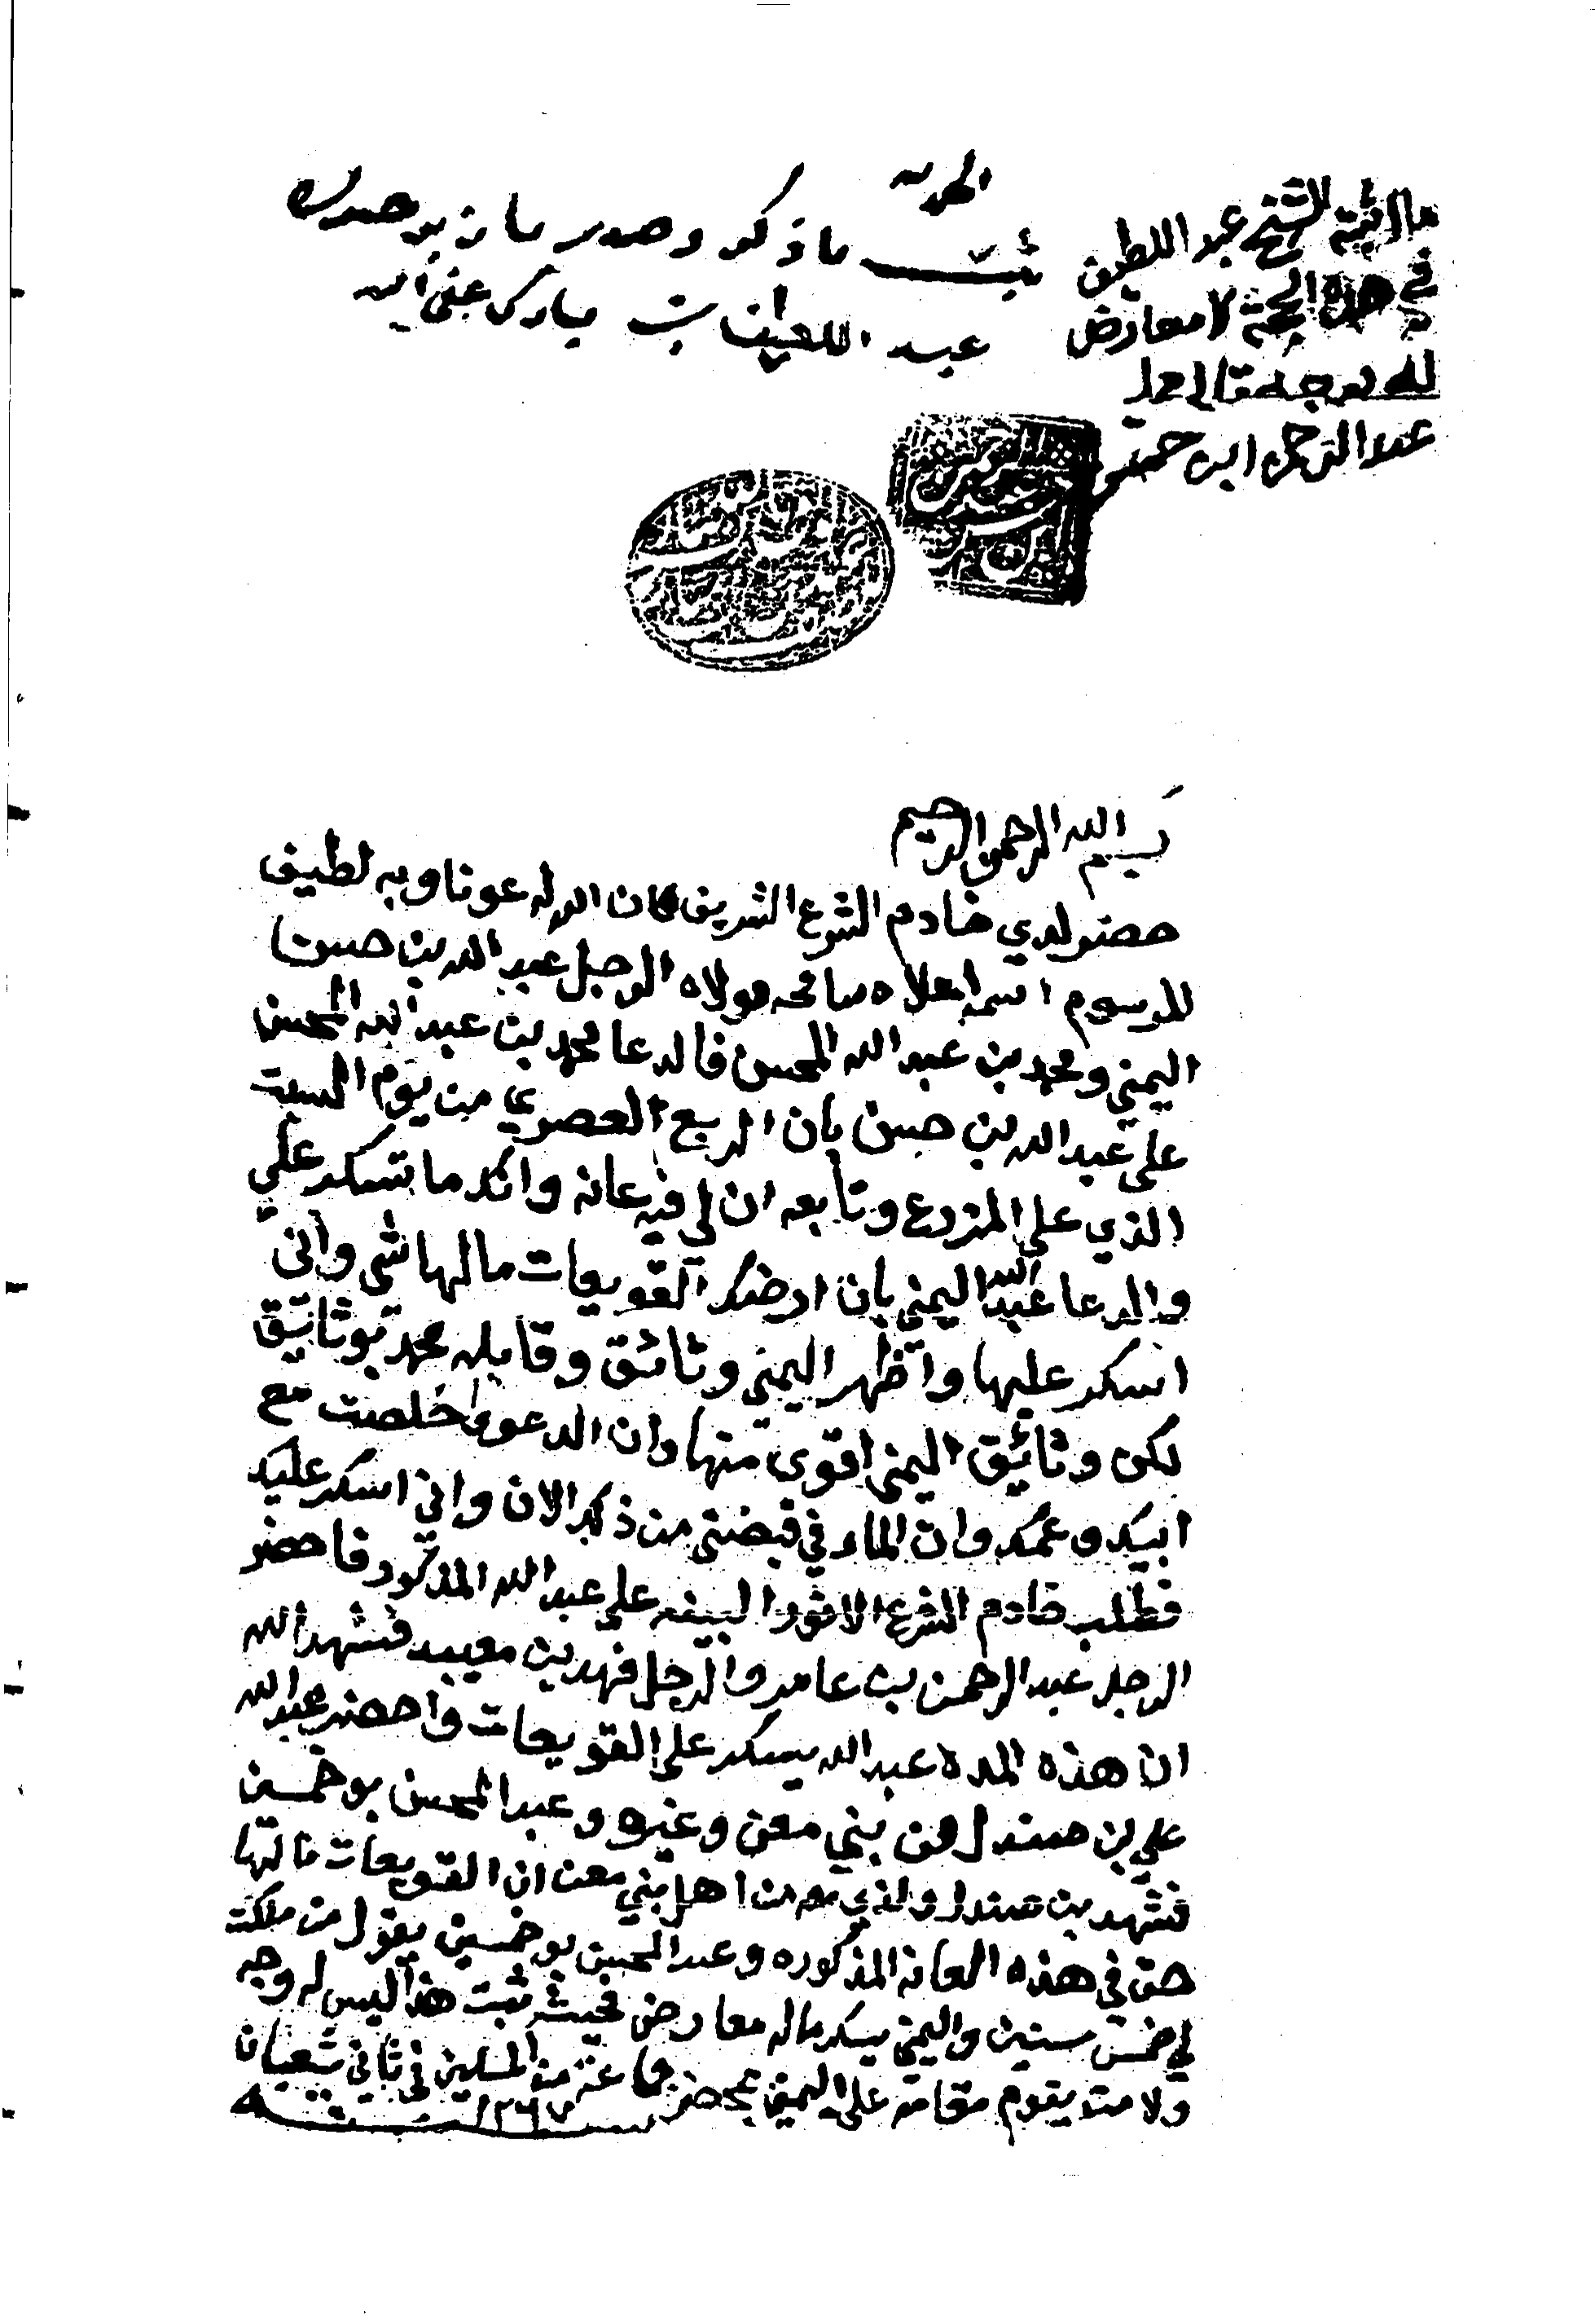 الحمد لله
ثبت ما ذكر وصدر ما زبر حرره
عبد اللطيف بن مبارك عفى الله
ما اثبته الشيخ عبد اللطيف
في هذه الحجة لا معارض
له بوجه قال
عبد الرحمن ابن
بسم الله الرحمن الرحيم
حضر لدي خادم الشرع الشريف كان الله له عونا وبه لطيف
المرسوم اسمه اعلاه سامحه مولاه الرجل عبد الله بن حسن
اليمني ومحمد بن عبد الله المحسن فالدعا محمد بن عبد الله المحسن
على عبد الله بن حسن بان الربع العصري من يوم السبت
الذي على المزرع وتابعه ان لي فيه عانه وانك ما تسكر علي
والدعا عبد الله اليمني بان ارضك القويعات ما لها شي واني
اسكر عليها واظهر اليمني وثائق وقابله محمد بوثائيق
لكن وثائيق اليمني اقوى منها وان الدعوى خلصت مع
ابيك وعمك وان الماء في قبضتي من ذكر الان واني اسكر عليك
فطلب خادم الشرع الانور البينه على عبد الله المذكور فاحضر
الرجل عبد الرحمن بن عامر والرجل فهد بن معيبد فشهد الله
ان هذه المده عبد الله يسكر على القويعات واحضر عبد الله
علي بن صندل من بني معن وغيره وعبد المحسن بوخمسين
فشهد بن صندل والذي معه من اهل بني معن ان القويعات ما لها
حق في هذه العانه المذكوره وعبد المحسن بوخمسين يقول من ملكت
لي خمس سنين واليمني يسكر ماله معارض فحيث ثبت هذا ليس له وجه
ولا من يقوم مقامه على اليمني بمحضر جماعة من المسلمين في ثاني شعبان
سنة ١٢٦٧